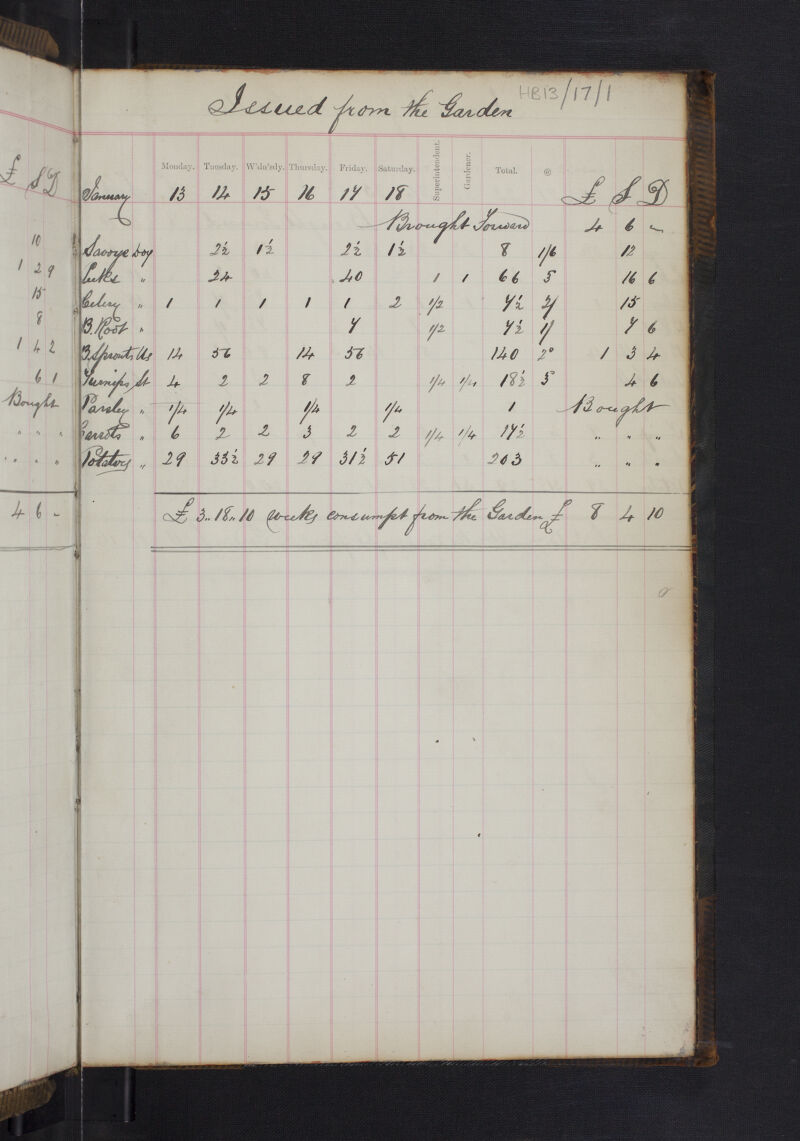 HB13/17/1
Issued from the Garden
Monday. Tuesday. W'dn'sdy. Thursday. Friday. Saturday. Superintendent. Gardener. Total. @
January 13 14 15 16 17 18 £ S D
Brought Forward 4 6 -
Savoys Doz 2½ 1½ 2½ 1½ 8 1/6 12
Leeks " 24 40 1 1 66 3 16 6
Celery " 1 1 1 1 1 2 1/2 7½ 2/ 15
B. Root " 7 1/2 7½ 1/ 7 6
B. Sprouts lbs 14 56 14 56 140 2° 1 3 4
Turnips St 4 2 2 8 2 1/4 1/4 18½ 3 4 6
Parsley " 1/4 1/4 1/4 1/4 1 Bought
Carrots " 6 2 2 3 2 2 1/4 1/4 17½ " " "
Potatoes " 29 33½ 29 29 31½ 51 203 " " "
£ 3..18..10 weeks consumpt from the Garden £ 8 4 10
£ S D
10
1 2 9
15
8
1 4 2
6 1
Bought
" " "
" " "
4 6 -